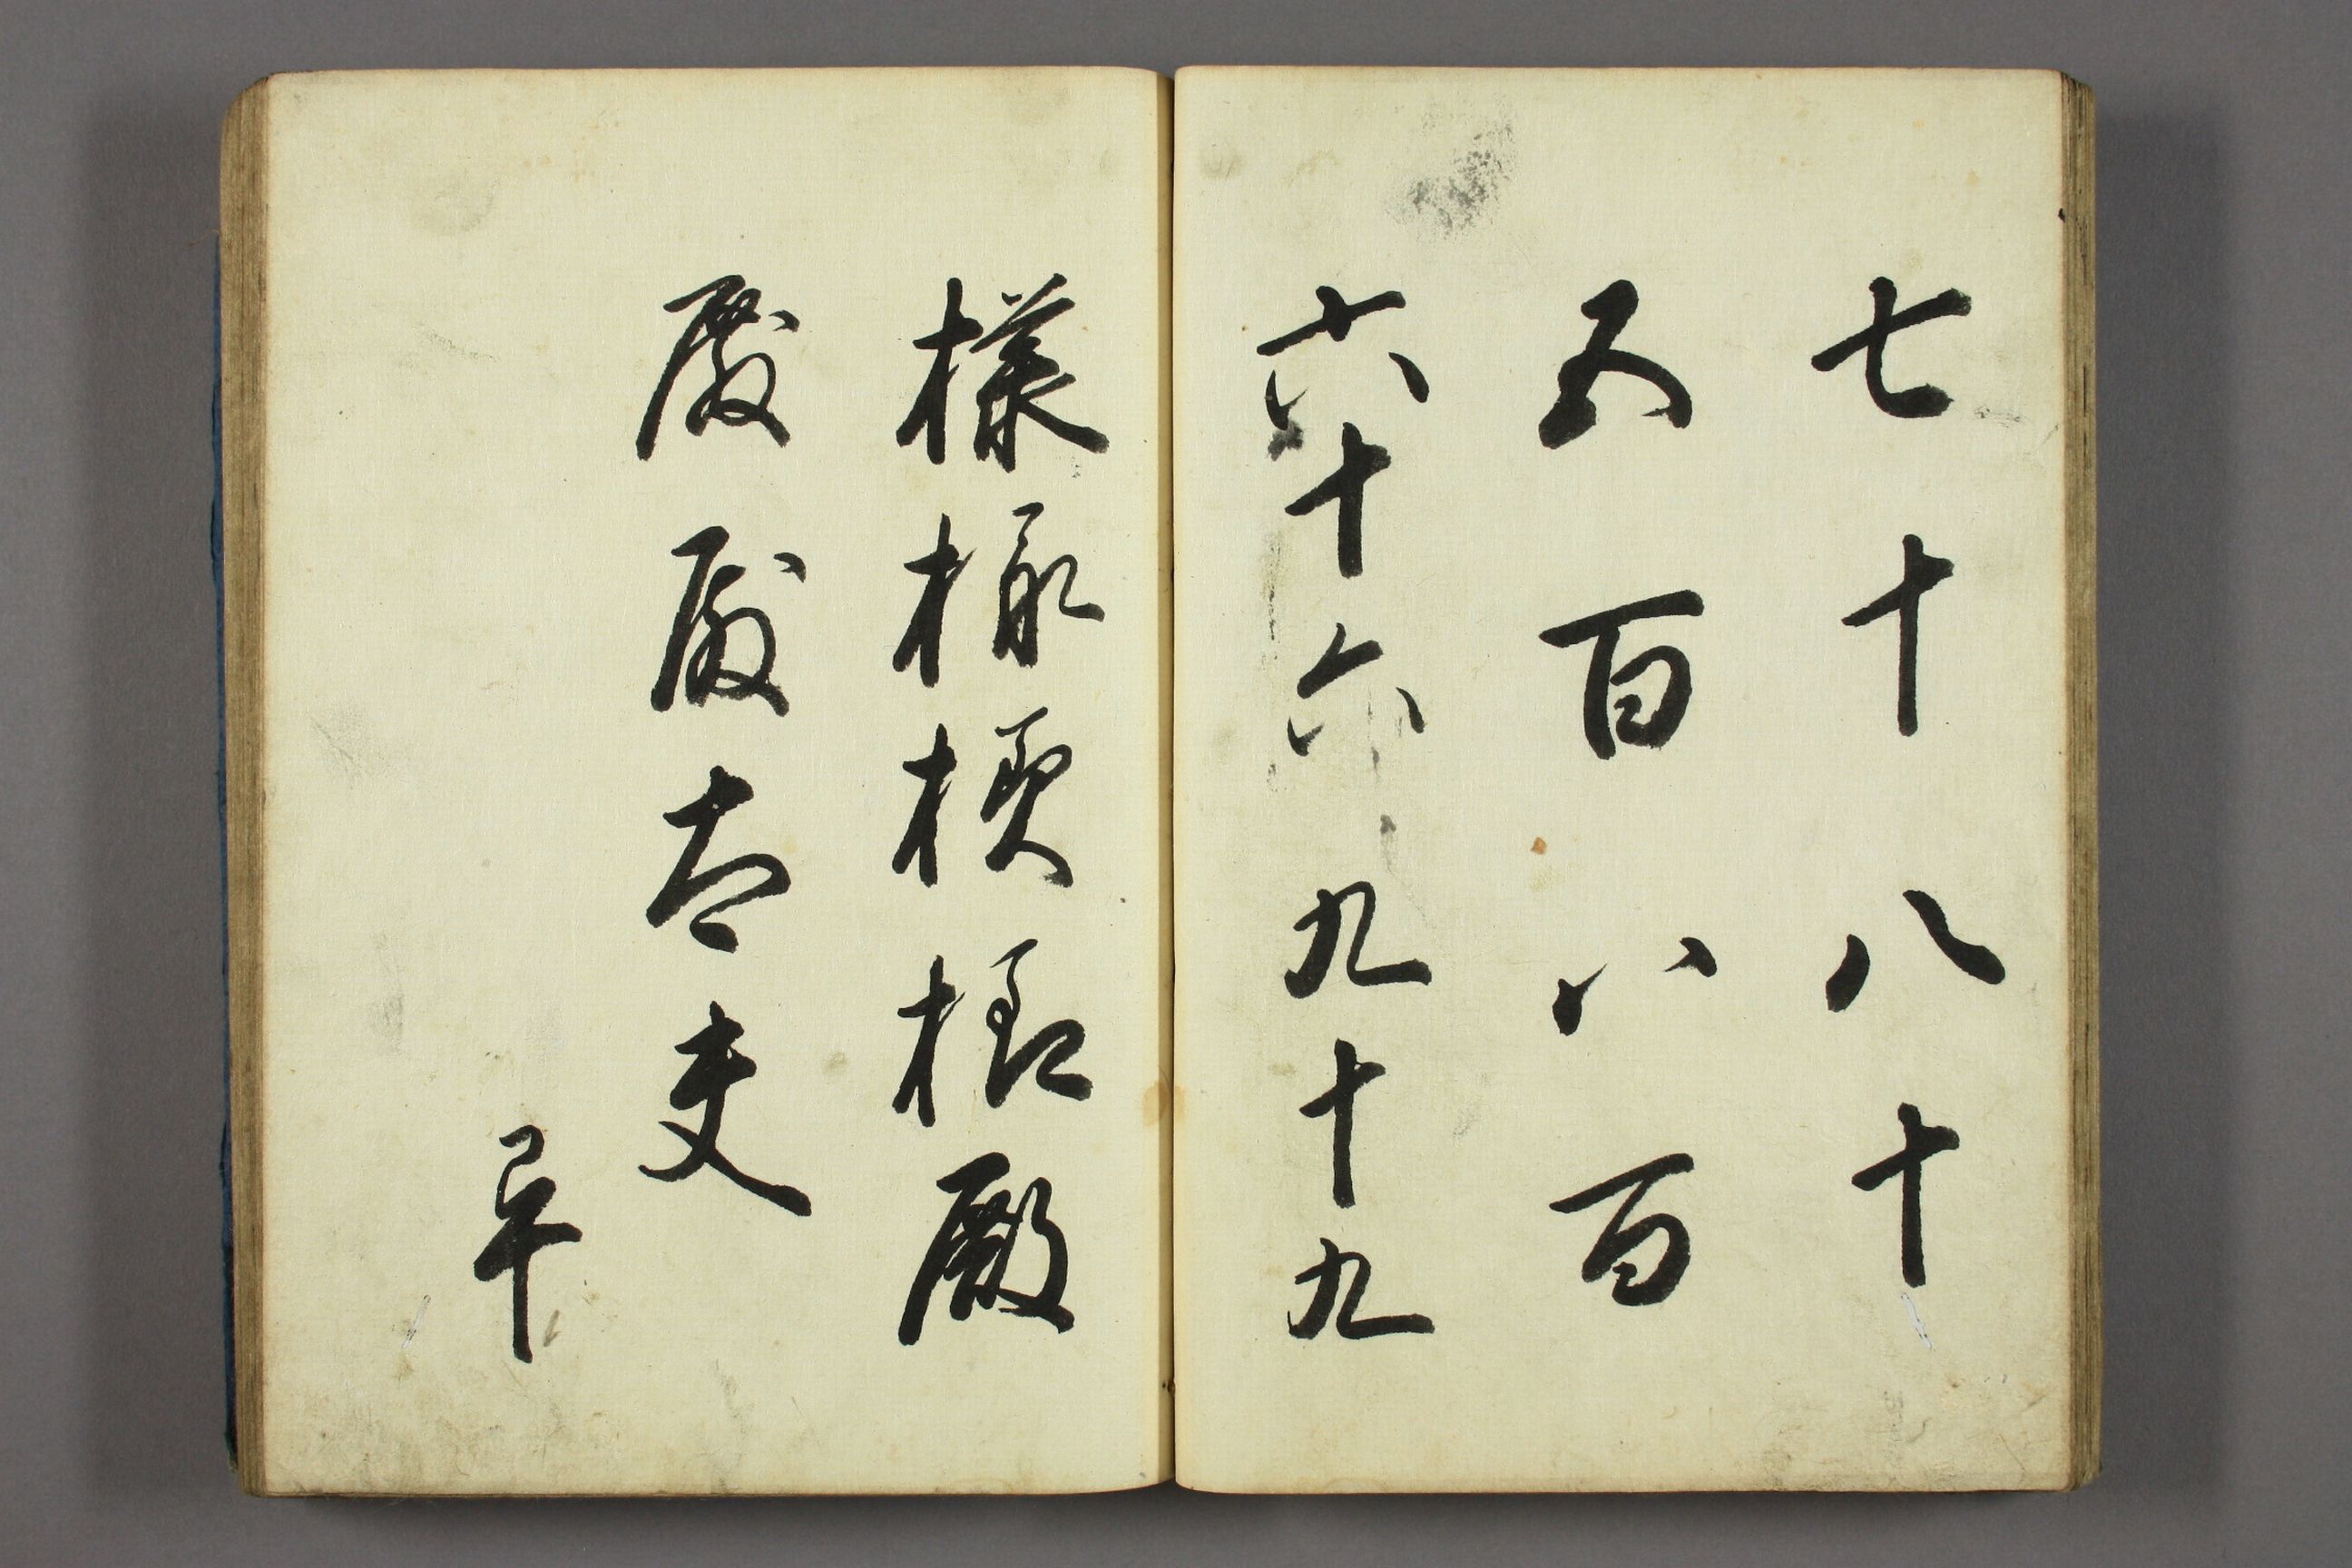 七十八十
五百八百
六十六九十九
様様様様殿
殿殿太夫